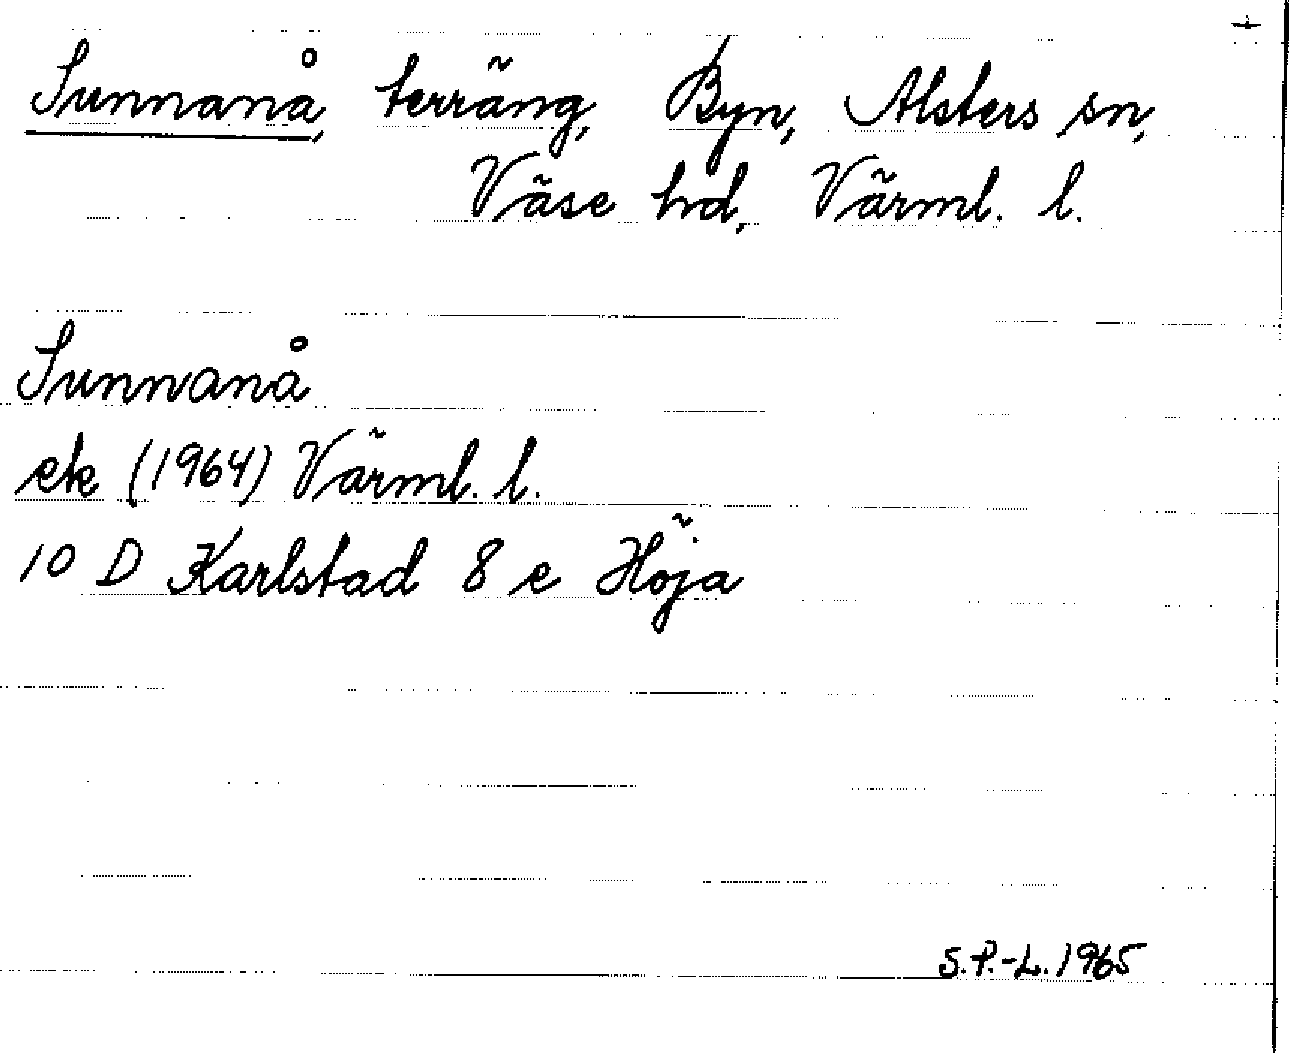 +
Sunnanå, terräng, Byn, Alsters sn,
Väse hd, Värml. l.
Sunnanå
ek (1964) Värml. l.
10 D Karlstad 8 e Höja
S.P.-L. 1965